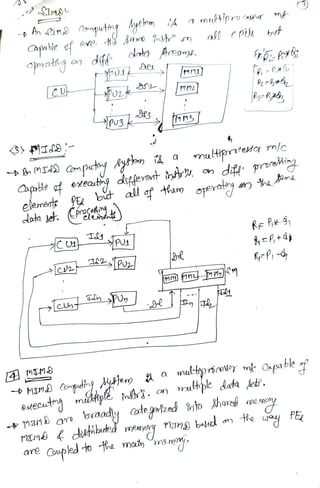 SIMD
→ An SIMD computing system is a multiprocessor m/c
Capable of exe. the same instrⁿ on all CPUs but
operating on diff. data streams.
CU
PU1
DS1
MM1
PU2
DS2
MM2
PU3
DS3
MM3
<3> MISD :-
→ An MISD Computing system is a multiprocessor m/c
Capable of executing different instrⁿs. on diff. processing
elements PEs but all of them operating on the same
data set. (processing elements)
CU1
IS1
PU1
CU2
IS2
PU2
CUn
ISn
PUn
MM1 MM2 MMn
ISn IS2 IS1
4 MIMD
→ MIMD Computing system is a multiprocessor m/c Capable of
executing multiple instrⁿs. on multiple data sets.
→ MIMD are broadly categorized into shared memory
MIMD & distributed memory MIMD based on the way PEs
are Coupled to the main memory.